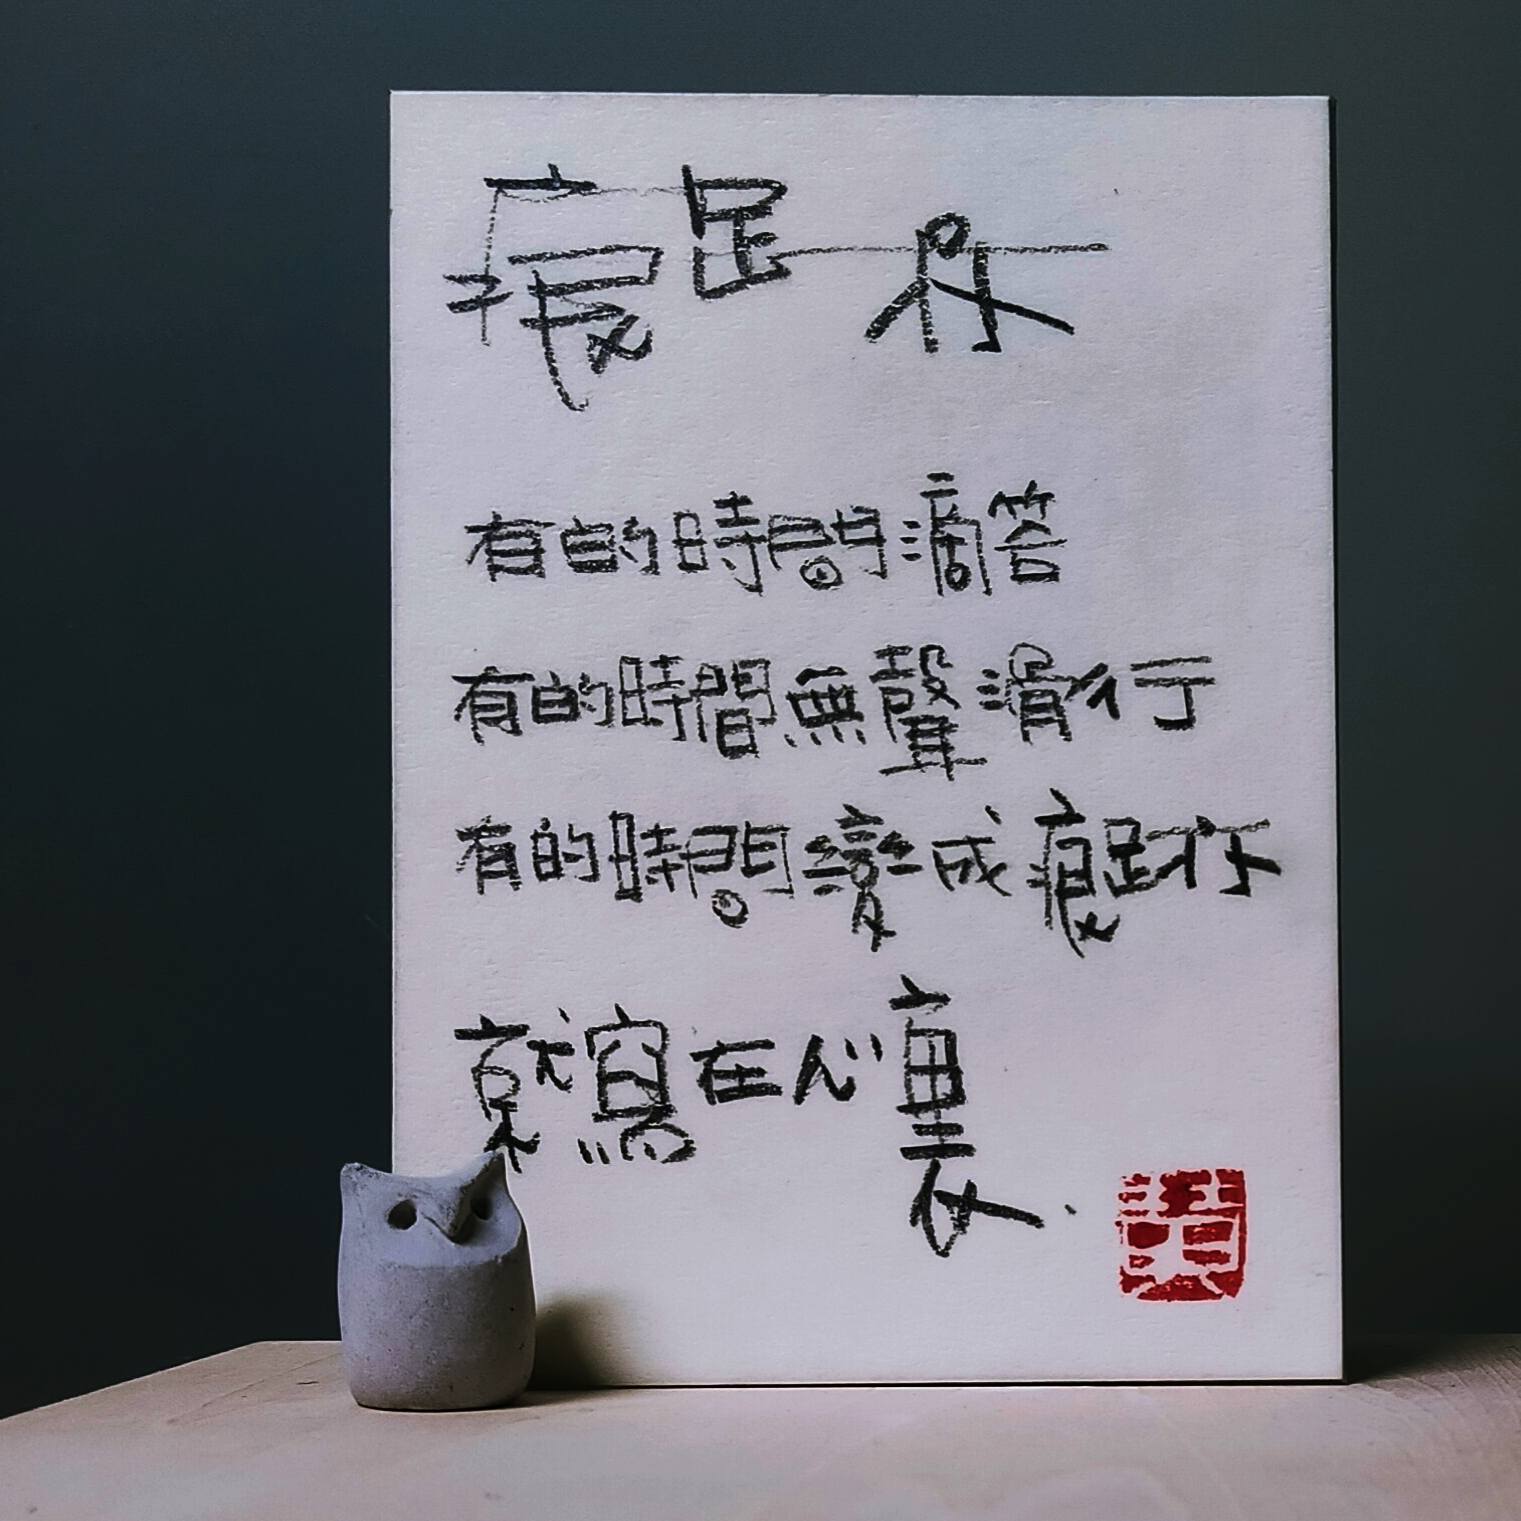 痕跡
有的時間滴答
有的時間無聲滑行
有的時間變成痕跡
就寫在心裏